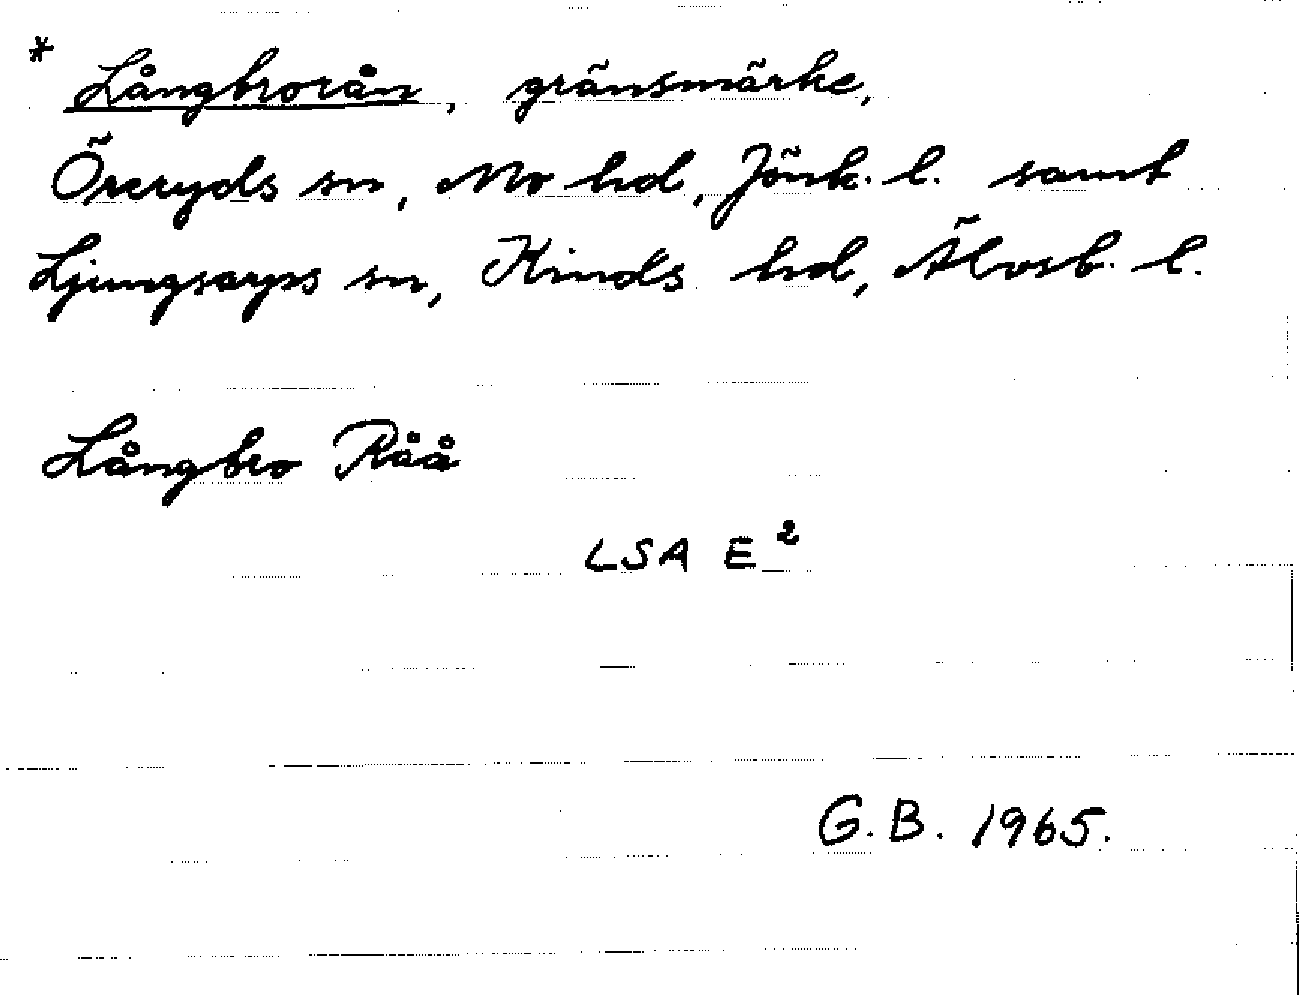 * Långbrorån, gränsmärke,
Öreryds sn, Mo hd, Jönk. l. samt
Ljungsarps sn, Kinds hd, Älvsb. l.
Långbro Råå
LSA E²
G.B. 1965.